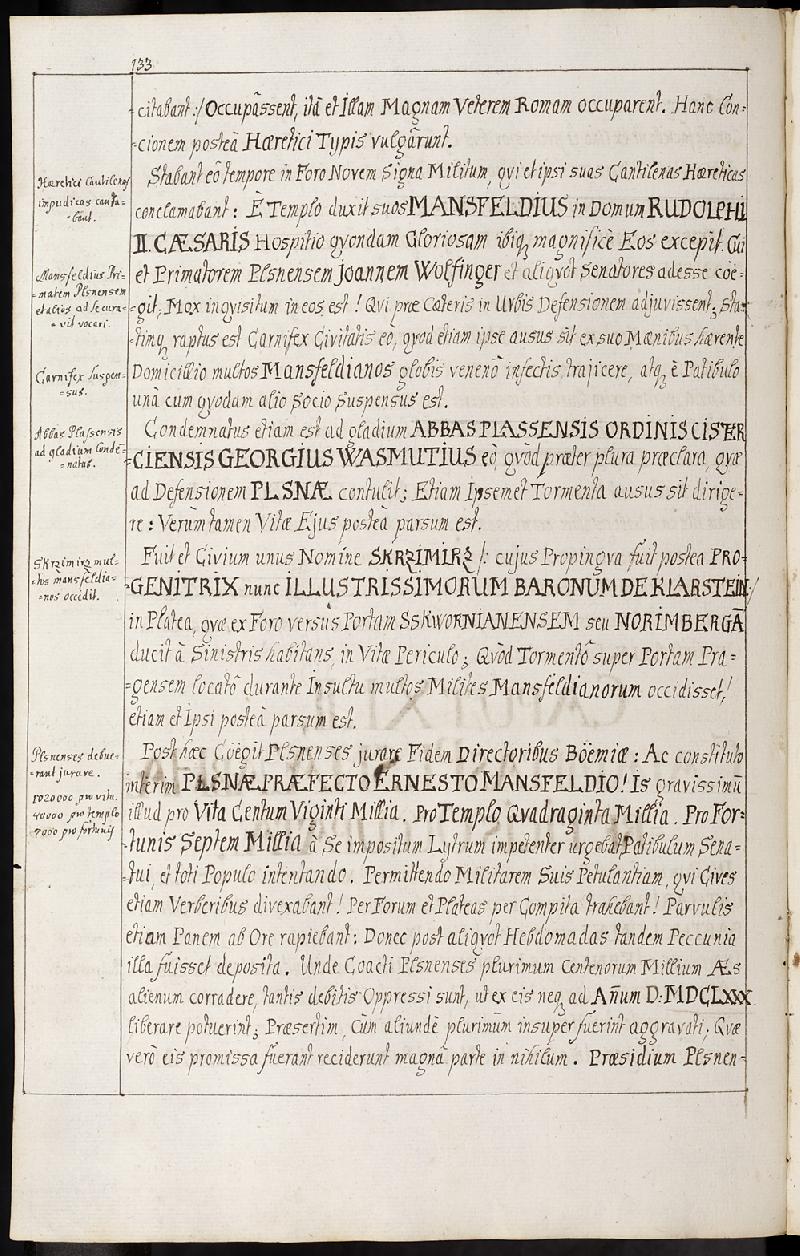 133
-citabant:/ Occupâssent, itâ et illam Magnam Veterem Romam occuparent. Hanc Con-
-cionem posteà Hæretici Typis vulgârunt.
Stabant eô tempore in Foro Novem Signa Militum, qvi et ipsi suas Cantilenas Hæreticas
Hæretici Cantilenas
impudicas canta-
-bant.
conclamabant: È Templo duxit suos MANSFELDIUS in Domum RUDOLPHI
II. CÆSARIS Hospitio qvondam Gloriosam ibiq; magnificè Eos excepit. Cui
Mansfeldius Pri-
-matem Plsnensem
et alios ad se cura-
-vit vocari.
et Primatorem Plsnensem Joannem Wolfinger et aliqvot Senatores adesse coe-
-git, Mox inqvisitum in eos est! Qvi præ Cæteris in Urbis Defensionem adjuvissent; Sta-
-timq; raptus est Carnifex Civitatis eò, qvod etiam ipse ausus sit ex suo Mænibus hærente
Carnifex suspen-
-sus.
Domicilio multos Mansfeldianos globis venenô infectis trajicere, atq; è Patibulo
unà cum qvodam alio Socio Suspensus est.
Abbas Plassensis
ad gladium Conde-
-natus.
Condemnatus etiam est ad gladium ABBAS PLASSENSIS ORDINIS CISTER
-CIENSIS GEORGIUS WASMUTIUS eò, qvòd præter plura præclara, qvæ
ad Defensionem PLSNÆ contulit; Etiam Ipsemet Tormenta ausus sit dirige-
re: Verùm tamen Vitæ Ejus posteà parsum est.
Skrzimirz mul-
-tos mansfeldia-
-nos occidit.
Fuit et Civium unus Nomine SKRZIMIRZ /: cujus Propinqva fuit postea PRO-
-GENITRIX nunc ILLUSTRISSIMORUM BARONUM DE KLARSTEIN:/
in Platea, qvæ ex Foro versùs Portam SSKWORNIANENSEM seu NORIMBERGÃ
ducit à Sinistris habitans, in Vitæ Periculo; Qvòd Tormentô super Portam Pra-
-gensem locatô durante Insultu multos Milites Mansfeldianorum occidisset!
etiam et Ipsi posteà parsum est.
Plsnenses debue-
-rant jurare.
Post hæc Coëgit Plsnenses jurare Fidem Directoribus Böemiæ: Ac constituto
interim PLSNÆ PRÆFECTO ERNESTO MANSFELDIO! Is gravissimũ
1020000 pro vita.
40000 pro templo
7000 pro fortunis
illud pro Vita Centum Viginti Millia. Pro Templo Qvadraginta Millia. Pro For-
-tunis Septem Millia à Se impositum Lytrum impetenter urgebat, Patibulum Sena-
-tui, et toti Populo intentando. Permittendo Militarem Suis Petulantiam, qvi Cives
etiam Verberibus divexabant! Per Forum et Plateas, per Compita trahebant! Parvulis
etiam Panem ab Ore rapiebant; Donec post aliqvot Hebdomadas tandem Peccunia
illa fuisset deposita. Unde Coacti Plsnenses plurimum Centenorum Millium Æs
alienum corradere, tantis debitis Oppressi sunt, ut ex eis neq; ad Añum D: MDCLXXX
liberare potuerint; Præsertim, Cùm aliundè plurimùm insuper fuerint aggravati, Qvæ
verò eis promissa fuerant reciderunt magnâ parte in nihilum. Præsidium Plsnen-